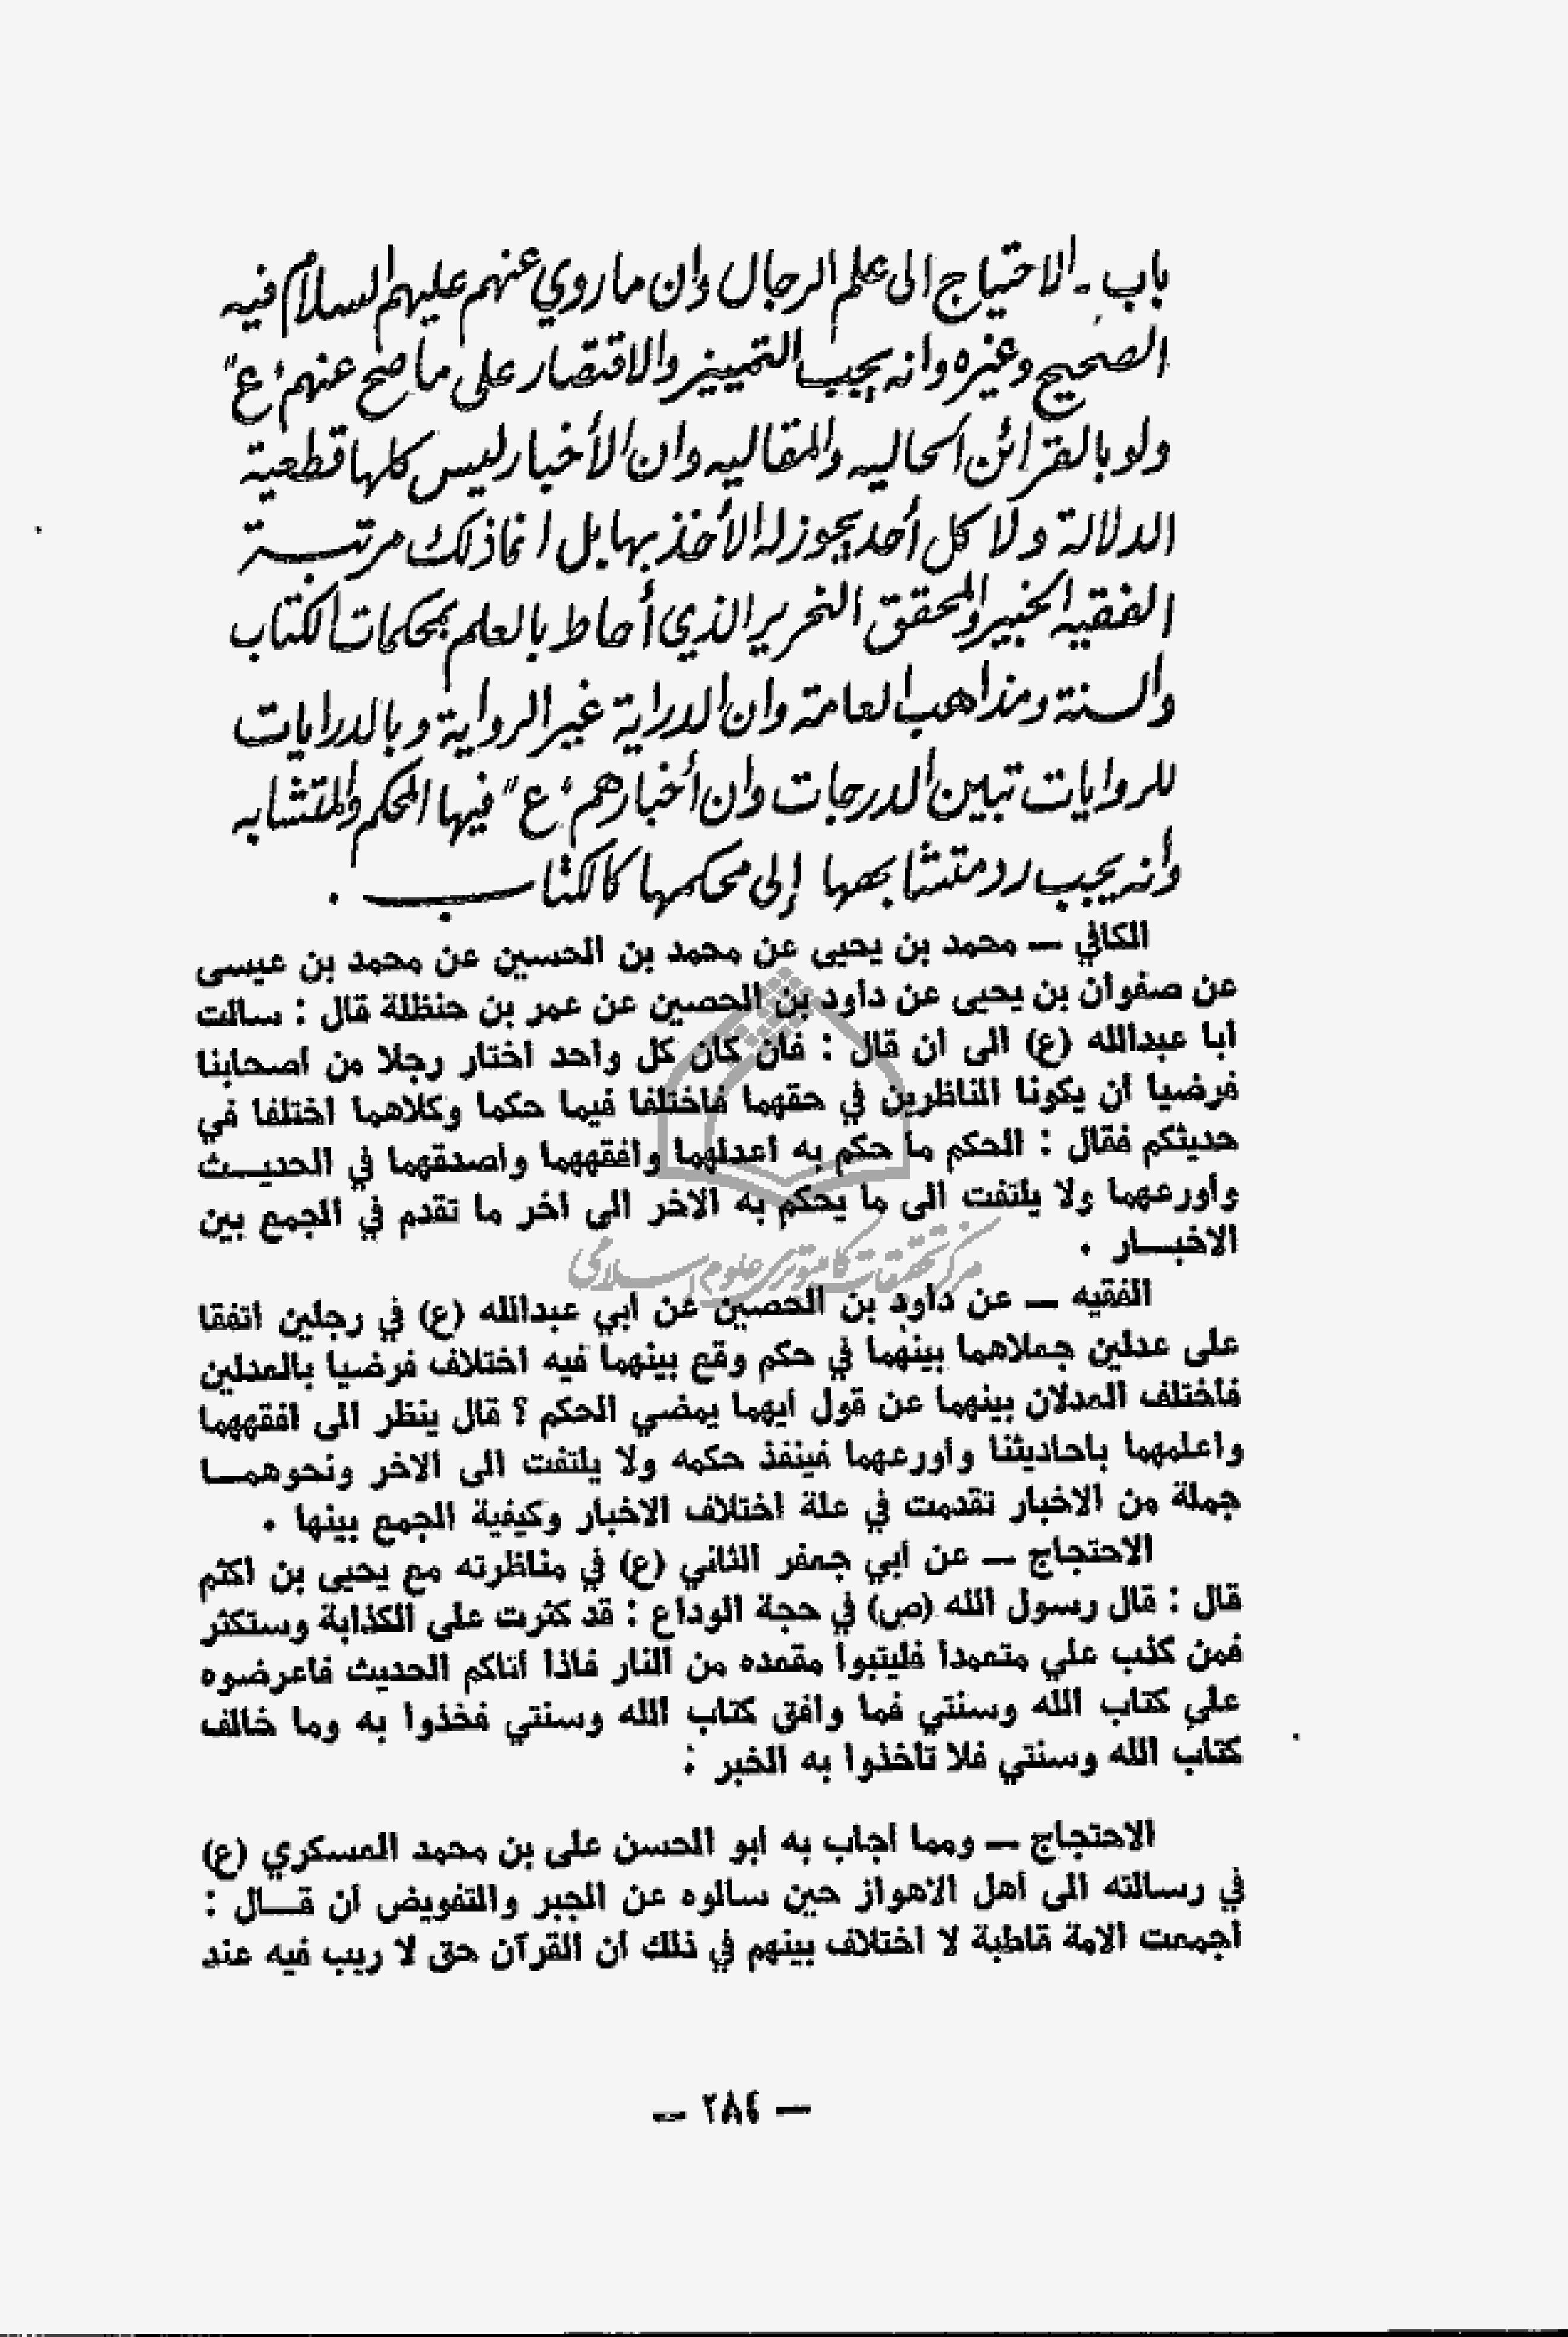 باب - الاحتياج الى علم الرجال وان ما روي عنهم عليهم السلام فيه
الصحيح وغيره وانه يجب التمييز والاقتصار على ما صح عنهم "ع"
ولو بالقرائن الحاليه والمقاليه وان الأخبار ليس كلها قطعية
الدلالة ولا كل أحد يجوز له الأخذ بها بل انما ذلك مرتبة
الفقيه الخبير والمحقق النحرير الذي أحاط بالعلم بمحكمات الكتاب
والسنة ومذاهب العامة وان الدراية غير الرواية وبالدرايات
للروايات تبين الدرجات وان أخبارهم "ع" فيها المحكم والمتشابه
وأنه يجب رد متشابهها إلى محكمها كالكتاب .
الكافي — محمد بن يحيى عن محمد بن الحسين عن محمد بن عيسى
عن صفوان بن يحيى عن داود بن الحصين عن عمر بن حنظلة قال : سالت
ابا عبدالله (ع) الى ان قال : فان كان كل واحد اختار رجلا من اصحابنا
فرضيا ان يكونا الناظرين في حقهما فاختلفا فيما حكما وكلاهما اختلفا في
حديثكم فقال : الحكم ما حكم به اعدلهما وافقههما واصدقهما في الحديث
واورعهما ولا يلتفت الى ما يحكم به الاخر الى اخر ما تقدم في الجمع بين
الاخبار .
مركز تحقيقات كامپيوترى علوم اسلامى
الفقيه — عن داود بن الحصين عن ابي عبدالله (ع) في رجلين اتفقا
على عدلين جعلاهما بينهما في حكم وقع بينهما فيه اختلاف فرضيا بالعدلين
فاختلف العدلان بينهما عن قول أيهما يمضي الحكم ؟ قال ينظر الى افقههما
واعلمهما باحاديثنا وأورعهما فينفذ حكمه ولا يلتفت الى الاخر ونحوهما
جملة من الاخبار تقدمت في علة اختلاف الاخبار وكيفية الجمع بينها .
الاحتجاج — عن أبي جعفر الثاني (ع) في مناظرته مع يحيى بن اكثم
قال : قال رسول الله (ص) في حجة الوداع : قد كثرت على الكذابة وستكثر
فمن كذب علي متعمدا فليتبوا مقعده من النار فاذا اتاكم الحديث فاعرضوه
على كتاب الله وسنتي فما وافق كتاب الله وسنتي فخذوا به وما خالف
كتاب الله وسنتي فلا تأخذوا به الخبر :
الاحتجاج — ومما أجاب به ابو الحسن على بن محمد العسكري (ع)
في رسالته الى أهل الاهواز حين سالوه عن الجبر والتفويض أن قال :
أجمعت الامة قاطبة لا اختلاف بينهم في ذلك أن القرآن حق لا ريب فيه عند
— ٢٨٤ —